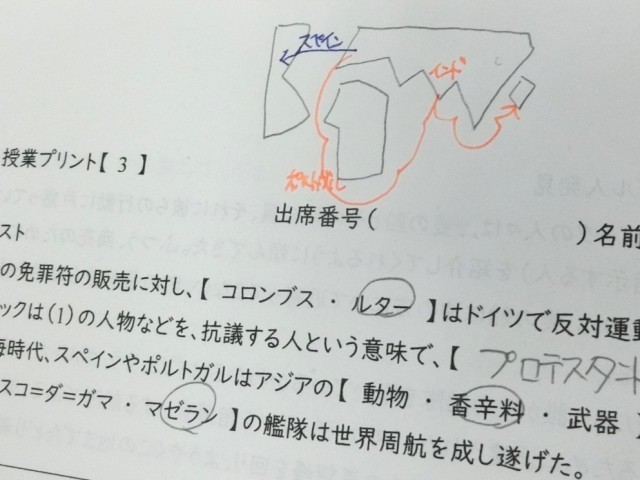 スペイン
インド
ポルトガル
授業プリント【 3 】
出席番号( )名前
スト
の免罪符の販売に対し、【 コロンブス ・ ルター 】はドイツで反対運動
ックは(1)の人物などを、抗議する人という意味で、【 プロテスタント
海時代、スペインやポルトガルはアジアの【 動物 ・ 香辛料 ・ 武器 】
スコ=ダ=ガマ ・ マゼラン 】の艦隊は世界周航を成し遂げた。